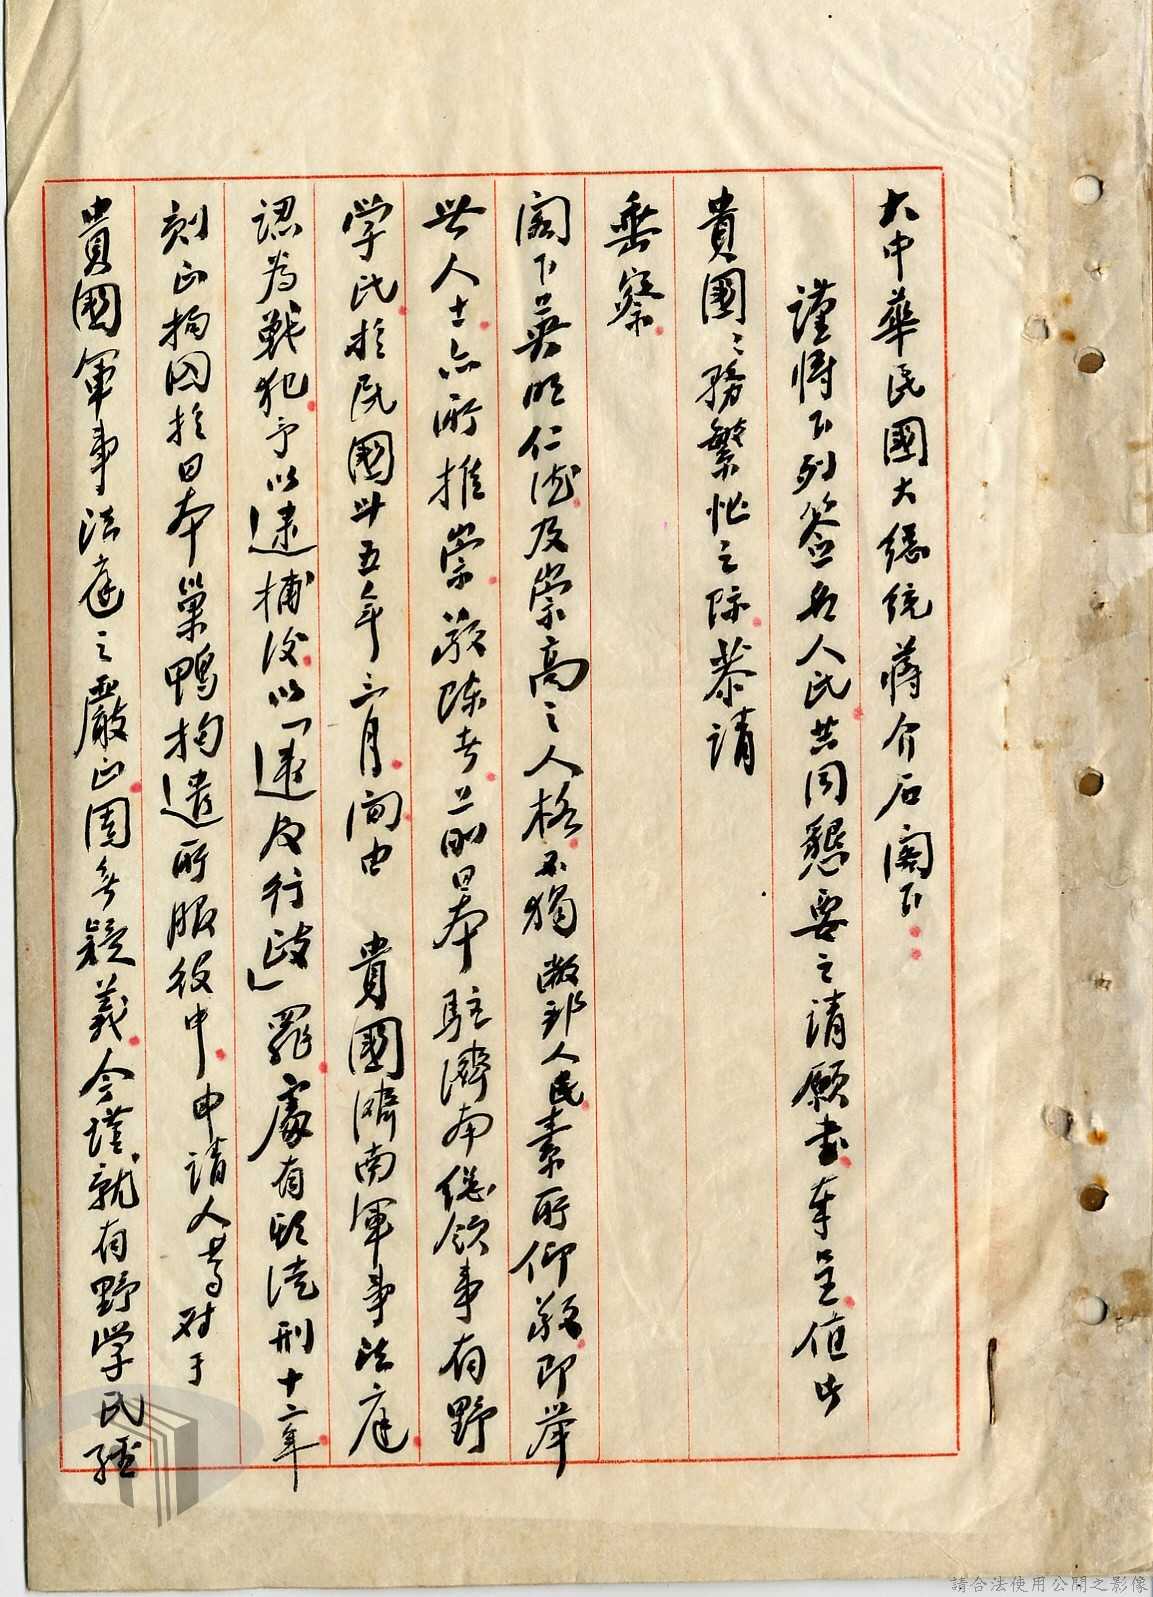 大中華民國大總統蔣介石閣下：
謹將下列簽名人民共同懇要之請願書奉呈值此
貴國々務繁忙之際恭請
垂察
閣下英明仁德及崇高之人格不獨敝邦人民素所仰敬即舉
世人士亦所推崇敬陳者上前日本駐濟南總領事有野
学氏於民國卅五年三月間由　貴國濟南軍事法庭
認為戰犯予以逮捕後以「違反行政」罪處有期徒刑十二年
刻正拘囚於日本巢鴨拘遣所服役中申請人等对于
貴國軍事法庭之嚴正固無疑義今謹就有野学氏經
請合法使用公開之影像